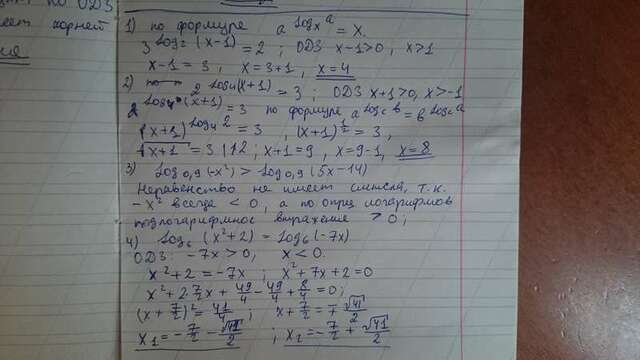 1) по формуле a logₐ x = x.
3 log₂ (x-1) = 2 ; ОДЗ x-1>0, x>1
x-1=3, x=3+1, x=4
2) 2 log₄(x+1) = 3 ; ОДЗ x+1>0, x>-1
(x+1) = 3 по формуле a log c b = b log c a
(x+1) log₄ 2 = 3, (x+1)½ = 3,
√x+1 = 3 |2 ; x+1=9, x=9-1, x=8
3) log 0,9 (-x²) > log 0,9 (5x-14)
Неравенство не имеет смысла, т.к.
-x² всегда < 0, а по опр. логарифмов
подлогарифмич. выражение > 0 ;
4) log₆ (x²+2) = log₆ (-7x)
ОДЗ: -7x>0, x<0
x²+2=-7x ; x²+7x+2=0
x²+2 7/2x + 49/4 - 49/4 + 8/4 = 0 ;
(x+7/2)² = 41/4, x+7/2 = ∓√41/2
x₁ = -7/2 - √41/2 ; x₂ = -7/2 + √41/2